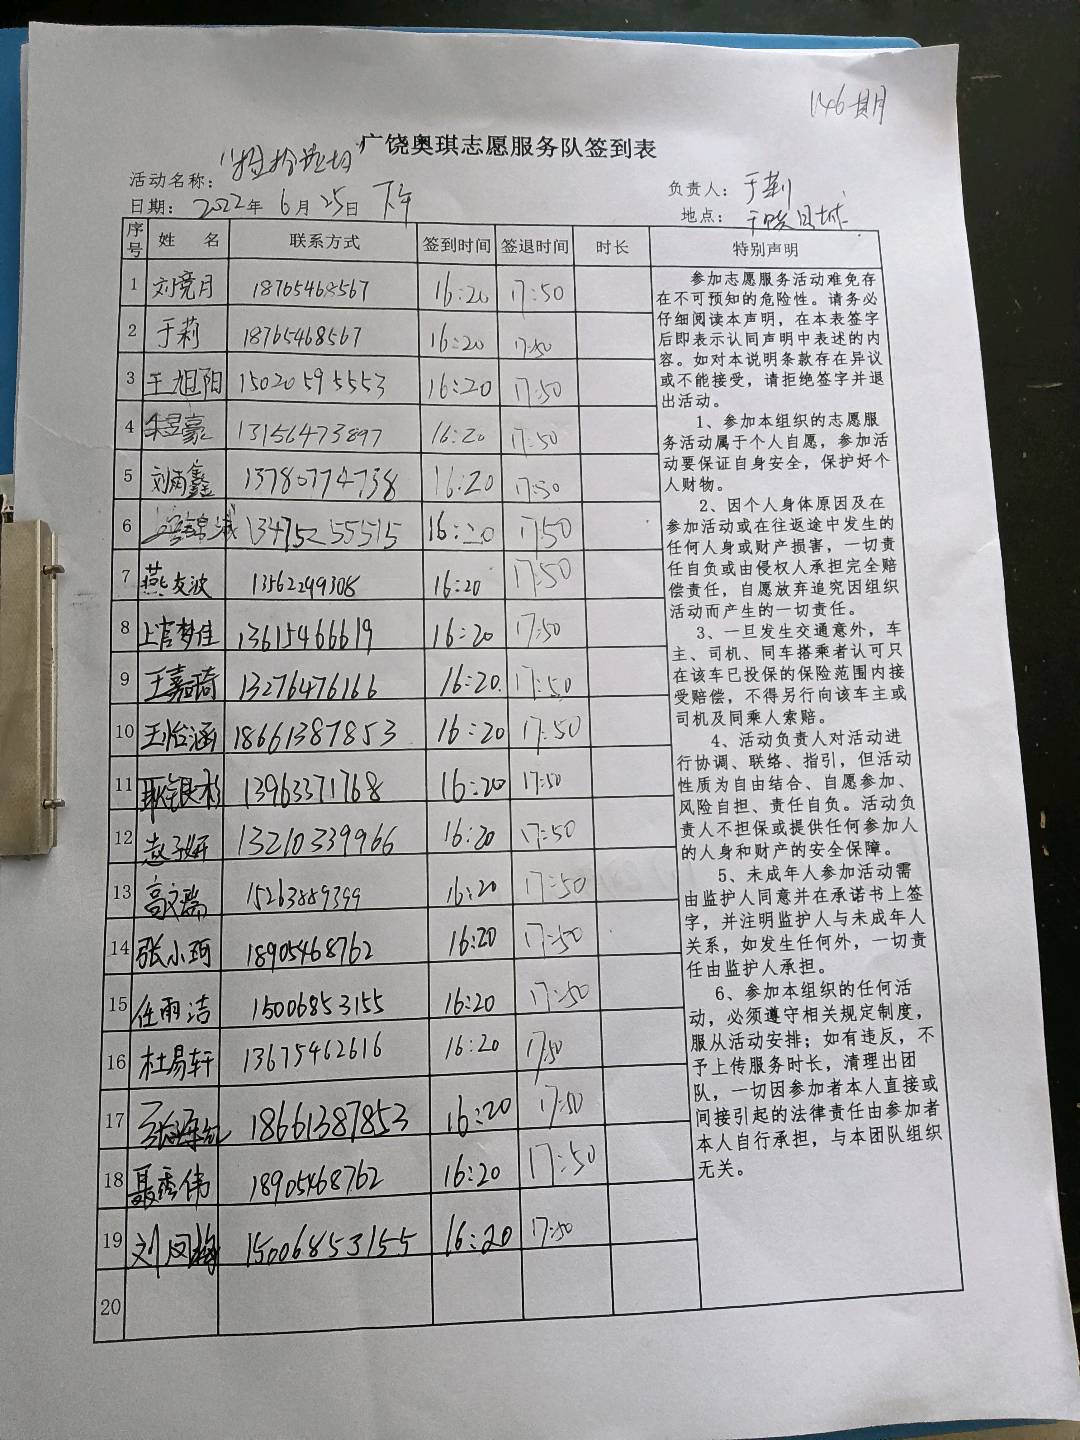 146期
广饶奥琪志愿服务队签到表
活动名称：“捡捡
负责人：于莉
日期：2022年6月25日 下午
地点：
序号 姓 名 联系方式 签到时间 签退时间 时长 特别声明
1 刘竞月 18765468567 16:20 17:50
2 于莉 18765468567 16:20 17:50
3 王旭阳 15020595553 16:20 17:50
4 朱昱豪 13156473897 16:20 17:50
5 刘炳鑫 13780774738 16:20 17:50
6 13475255515 16:20 17:50
7 燕友波 13562299308 16:20 17:50
8 上官梦佳 13615466619 16:20 17:50
9 王嘉琦 13276476166 16:20 17:50
10 王怡涵 18661387853 16:20 17:50
11 耿银杉 13963371768 16:20 17:50
12 赵子妍 13210339966 16:20 17:50
13 高文瑞 15263889399 16:20 17:50
14 张小珂 18905468762 16:20 17:50
15 任雨洁 15006853155 16:20 17:50
16 杜易轩 13675462616 16:20 17:50
17 张 18661387853 16:20 17:50
18 聂秀伟 18905468762 16:20 17:50
19 刘凤梅 15006853155 16:20 17:50
20
参加志愿服务活动难免存
在不可预知的危险性。请务必
仔细阅读本声明，在本表签字
后即表示认同声明中表述的内
容。如对本说明条款存在异议
或不能接受，请拒绝签字并退
出活动。
1、参加本组织的志愿服
务活动属于个人自愿，参加活
动要保证自身安全，保护好个
人财物。
2、因个人身体原因及在
参加活动或在往返途中发生的
任何人身或财产损害，一切责
任自负或由侵权人承担完全赔
偿责任，自愿放弃追究因组织
活动而产生的一切责任。
3、一旦发生交通意外，车
主、司机、同车搭乘者认可只
在该车已投保的保险范围内接
受赔偿，不得另行向该车主或
司机及同乘人索赔。
4、活动负责人对活动进
行协调、联络、指引，但活动
性质为自由结合、自愿参加、
风险自担、责任自负。活动负
责人不担保或提供任何参加人
的人身和财产的安全保障。
5、未成年人参加活动需
由监护人同意并在承诺书上签
字，并注明监护人与未成年人
关系，如发生任何外，一切责
任由监护人承担。
6、参加本组织的任何活
动，必须遵守相关规定制度，
服从活动安排；如有违反，不
予上传服务时长，清理出团
队，一切因参加者本人直接或
间接引起的法律责任由参加者
本人自行承担，与本团队组织
无关。